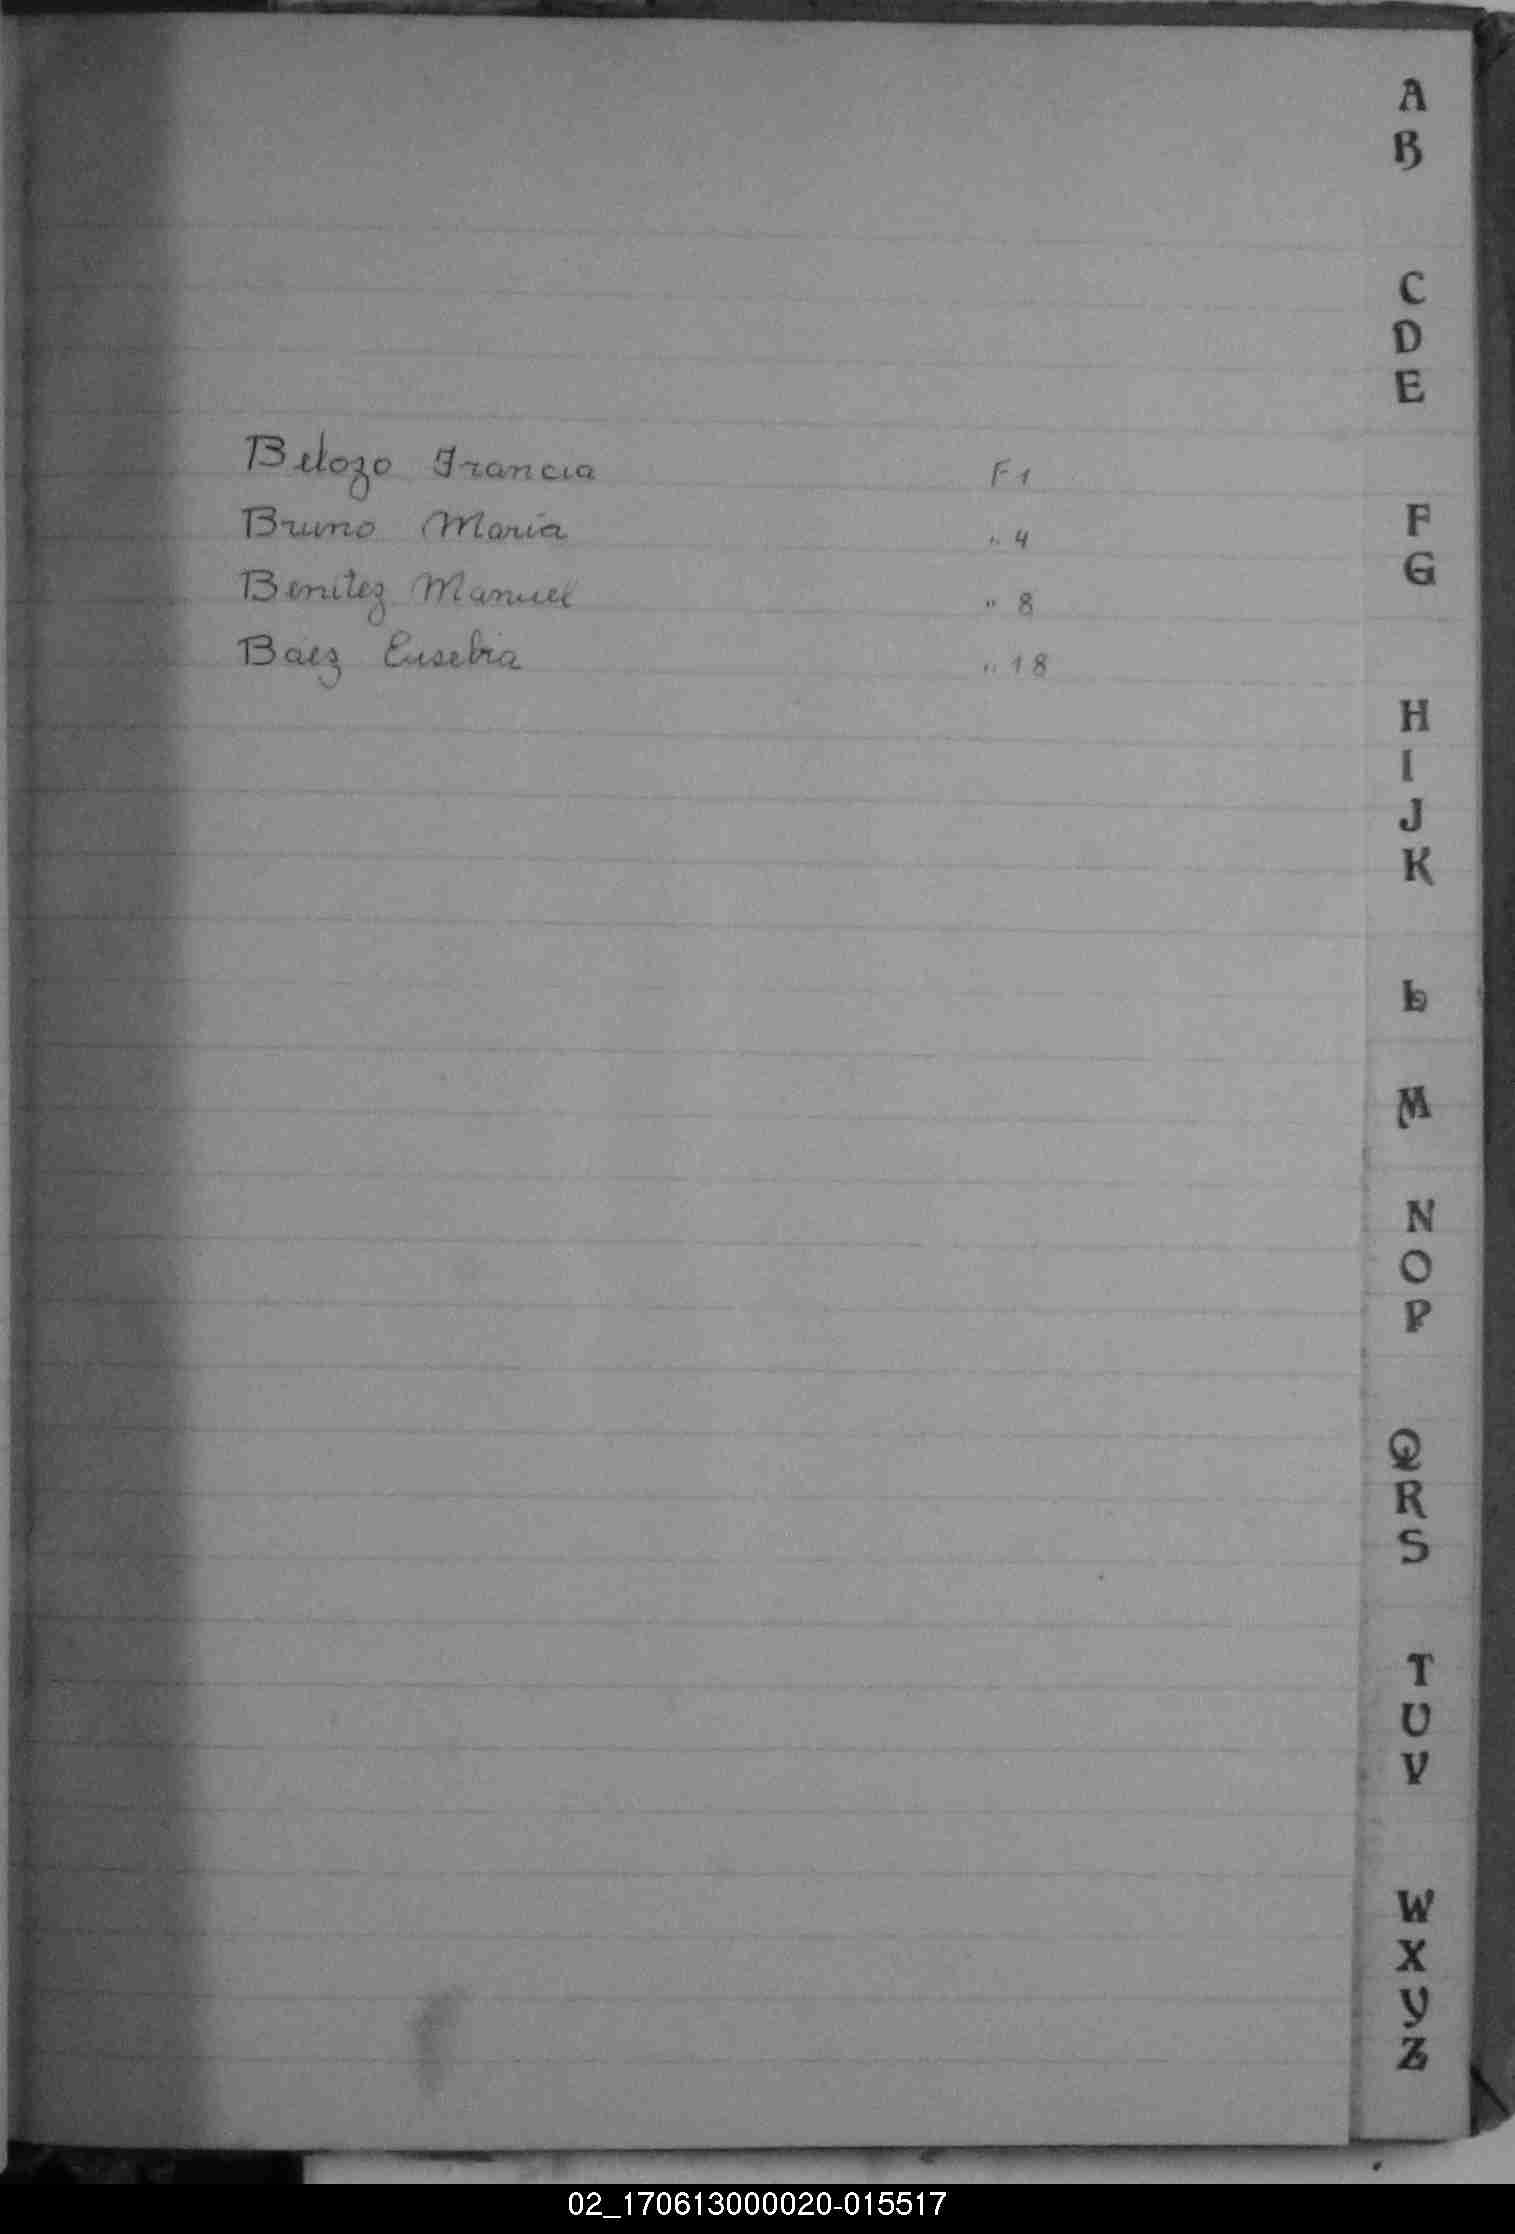 A
B
C
D
E
Belozo Francia F 1
Bruno Maria " 4
F
G
Benitez Manuel " 8
Baez Eusebia " 18
H
I
J
K
L
M
N
O
P
Q
R
S
T
U
V
W
X
Y
Z
02_170613000020-015517